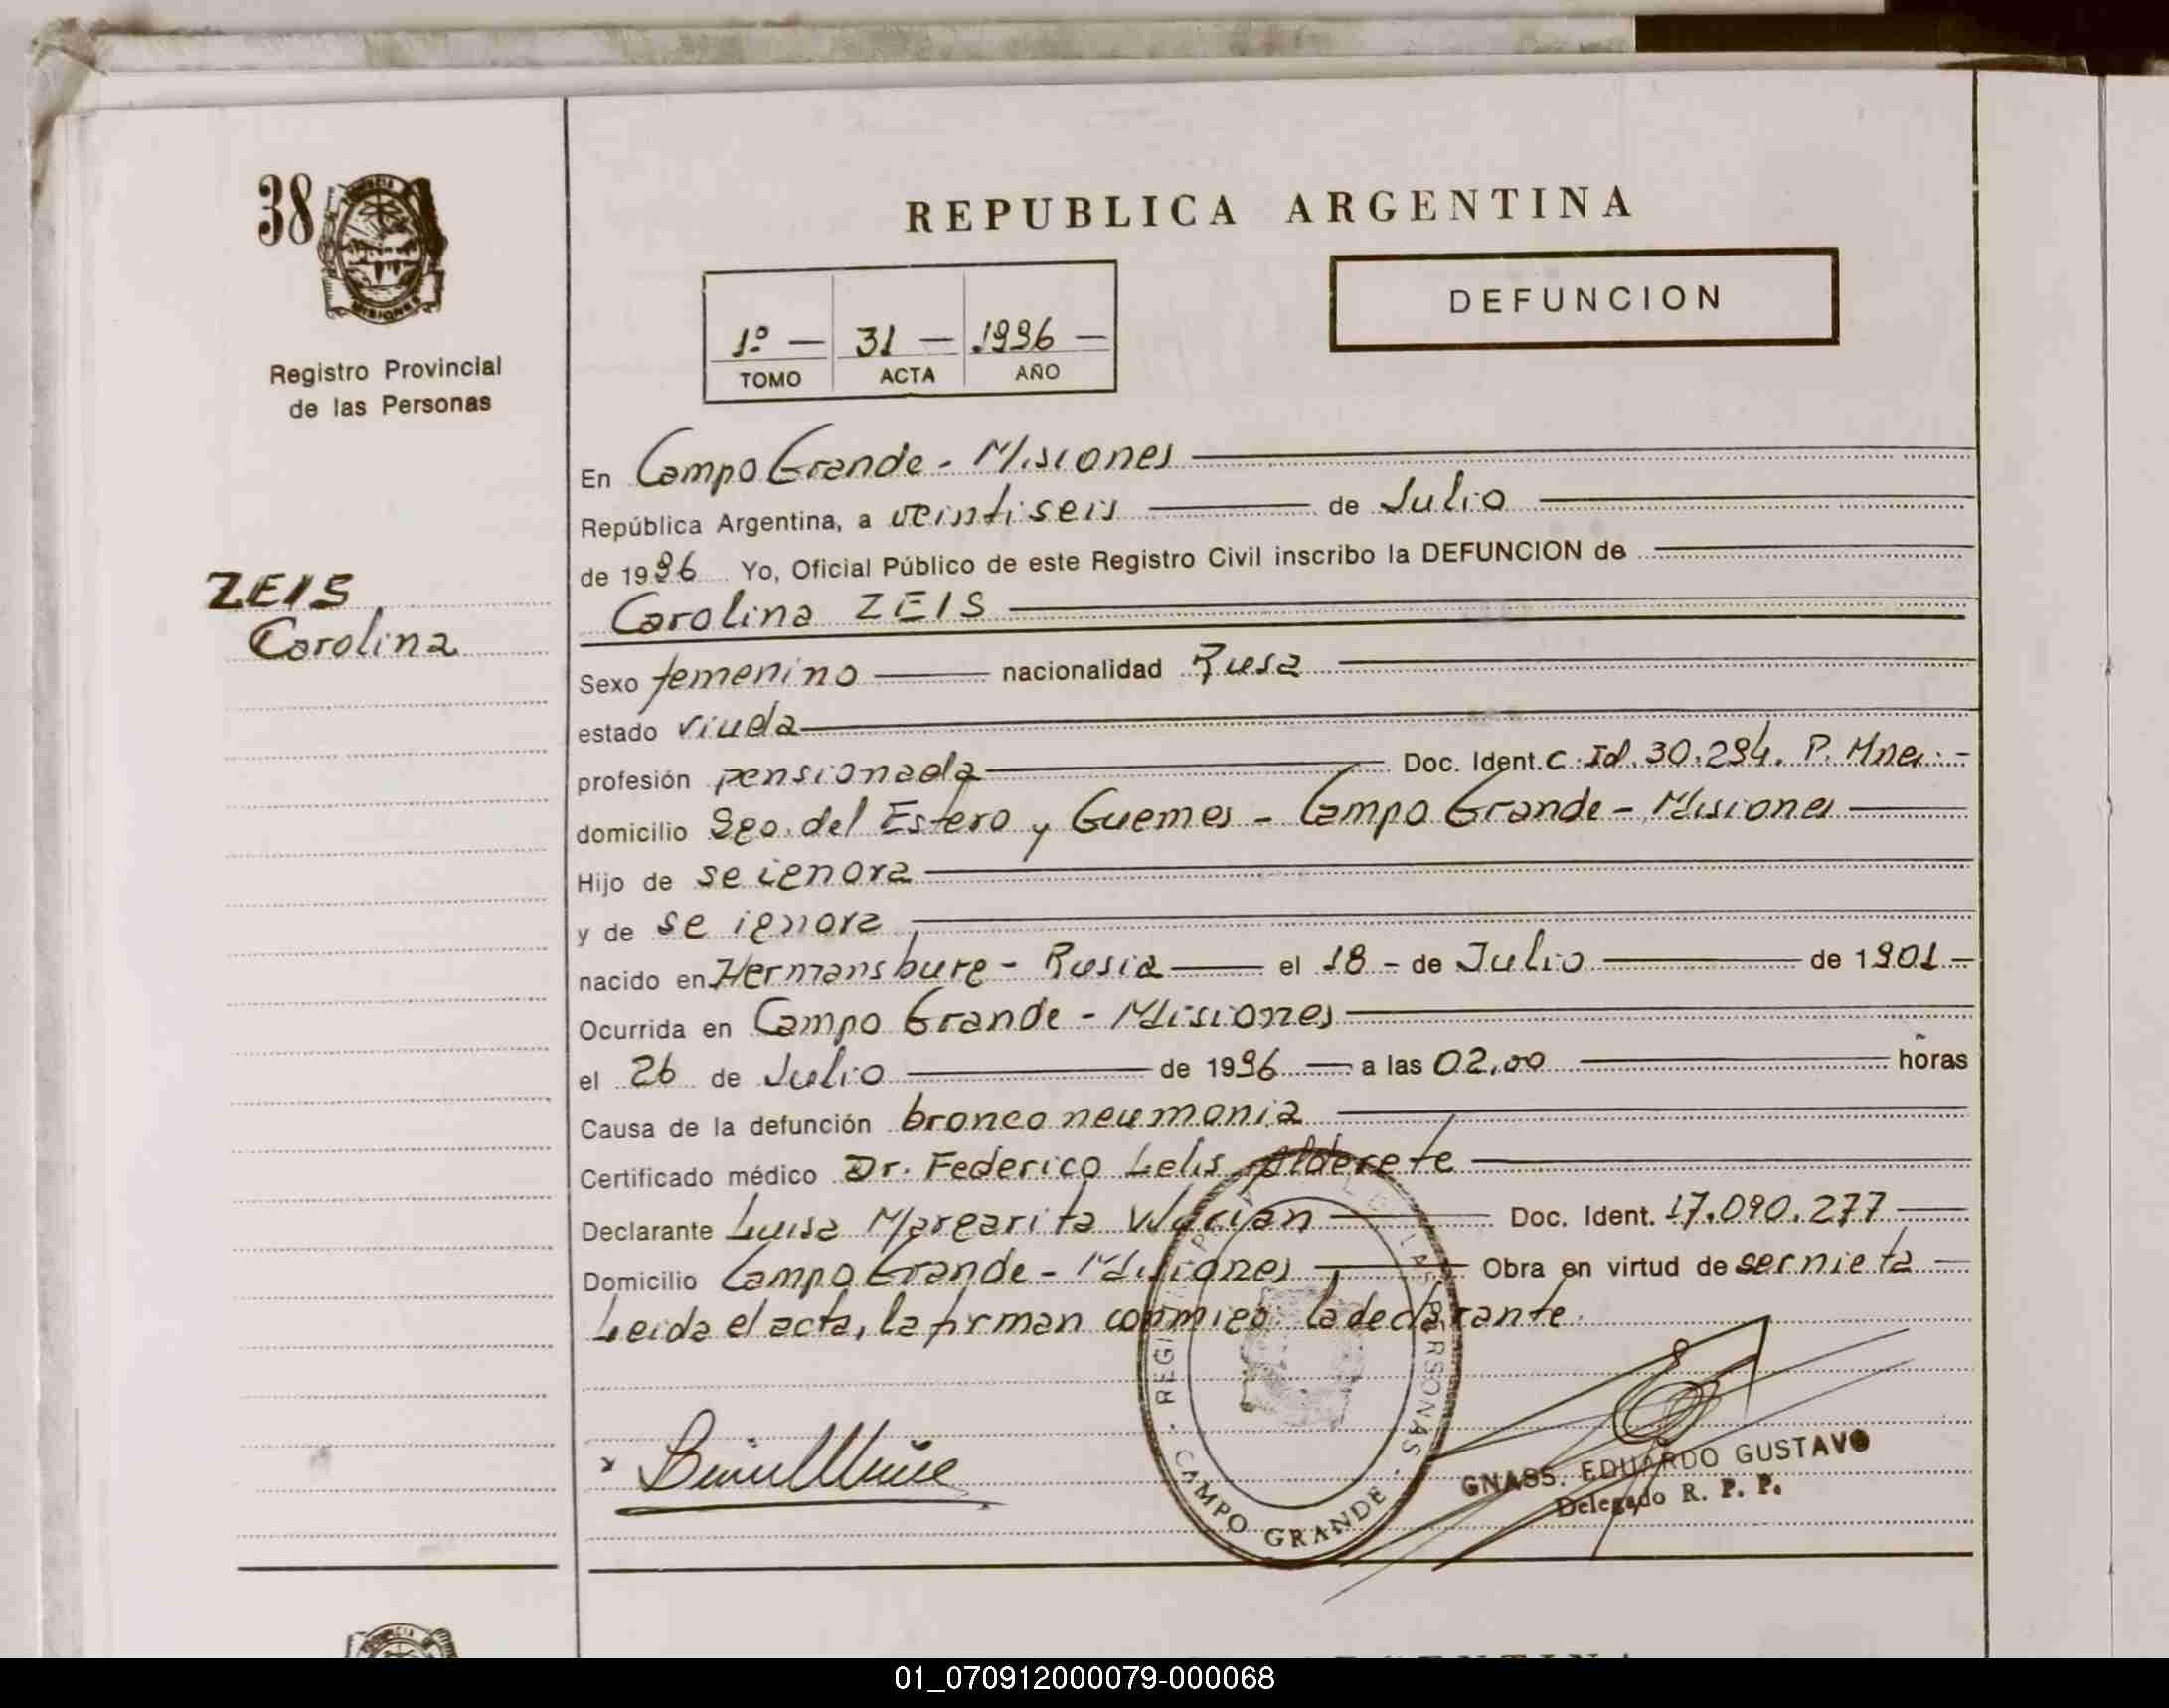 38
PROVINCIA DE
MISIONES
Registro Provincial
de las Personas
REPUBLICA ARGENTINA
DEFUNCION
1º — 31 — 1996 —
TOMO ACTA AÑO
En Campo Grande - Misiones
República Argentina, a veintiseis de Julio
de 1996 Yo, Oficial Público de este Registro Civil inscribo la DEFUNCION de
ZEIS
Carolina
Carolina ZEIS
Sexo femenino nacionalidad Rusa
estado viuda
profesión pensionada Doc. Ident. C. Id. 30.294. P. Mnes. -
domicilio Sgo. del Estero y Guemes - Campo Grande - Misiones
Hijo de se ignora
y de se ignora
nacido en Hermansburg - Rusia el 18 - de Julio de 1901 -
Ocurrida en Campo Grande - Misiones
el 26 de Julio de 1996 a las 02,00 horas
Causa de la defunción bronco neumonia
Certificado médico Dr. Federico Lelis Alderete
Declarante Luisa Margarita Doc. Ident. 17.090.277
Domicilio Campo Grande - Misiones Obra en virtud de ser nieta
Leida el acta, la firman conmigo la declarante.
REGI LAS PERSONAS - CAMPO GRANDE -
GNASS. EDUARDO GUSTAVO
Delegado R. P. P.
01_070912000079-000068